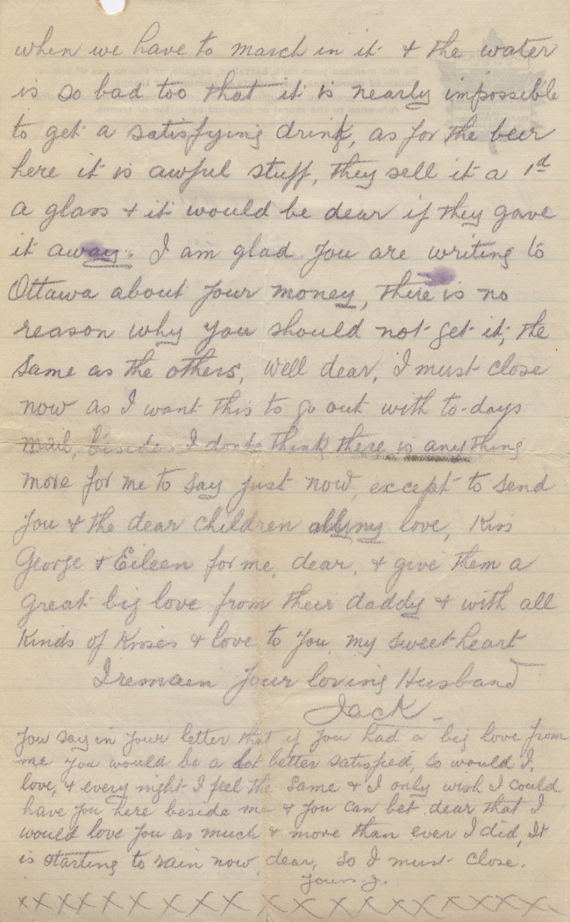 when we have to march in it & the water
is so bad too that it is nearly impossible
to get a satisfying drink, as for the beer
here it is awful stuff, they sell it a 1d
a glass & it would be dear if they gave
it away. I am glad you are writing to
Ottawa about your money, there is no
reason why you should not get it, the
same as the others, well dear, I must close
now as I want this to go out with to-days
mail, beside. I dont think there is anything
more for me to say just now, except to send
you & the dear children all my love, Kiss
George & Eileen for me, dear, & give them a
great big love from their daddy & with all
kinds of kisses & love to you, my sweetheart
I remain your loving Husband
Jack.
You say in your letter that if you had a big love from
me you would be a lot better satisfied, so would I,
love, & every night I feel the same & I only wish I could
have you here beside me & you can bet dear that I
would love you as much & more than ever I did, It
is starting to rain now, dear, so I must close.
Yours J.
XXXXXXXXXXXXXXXXXXXX